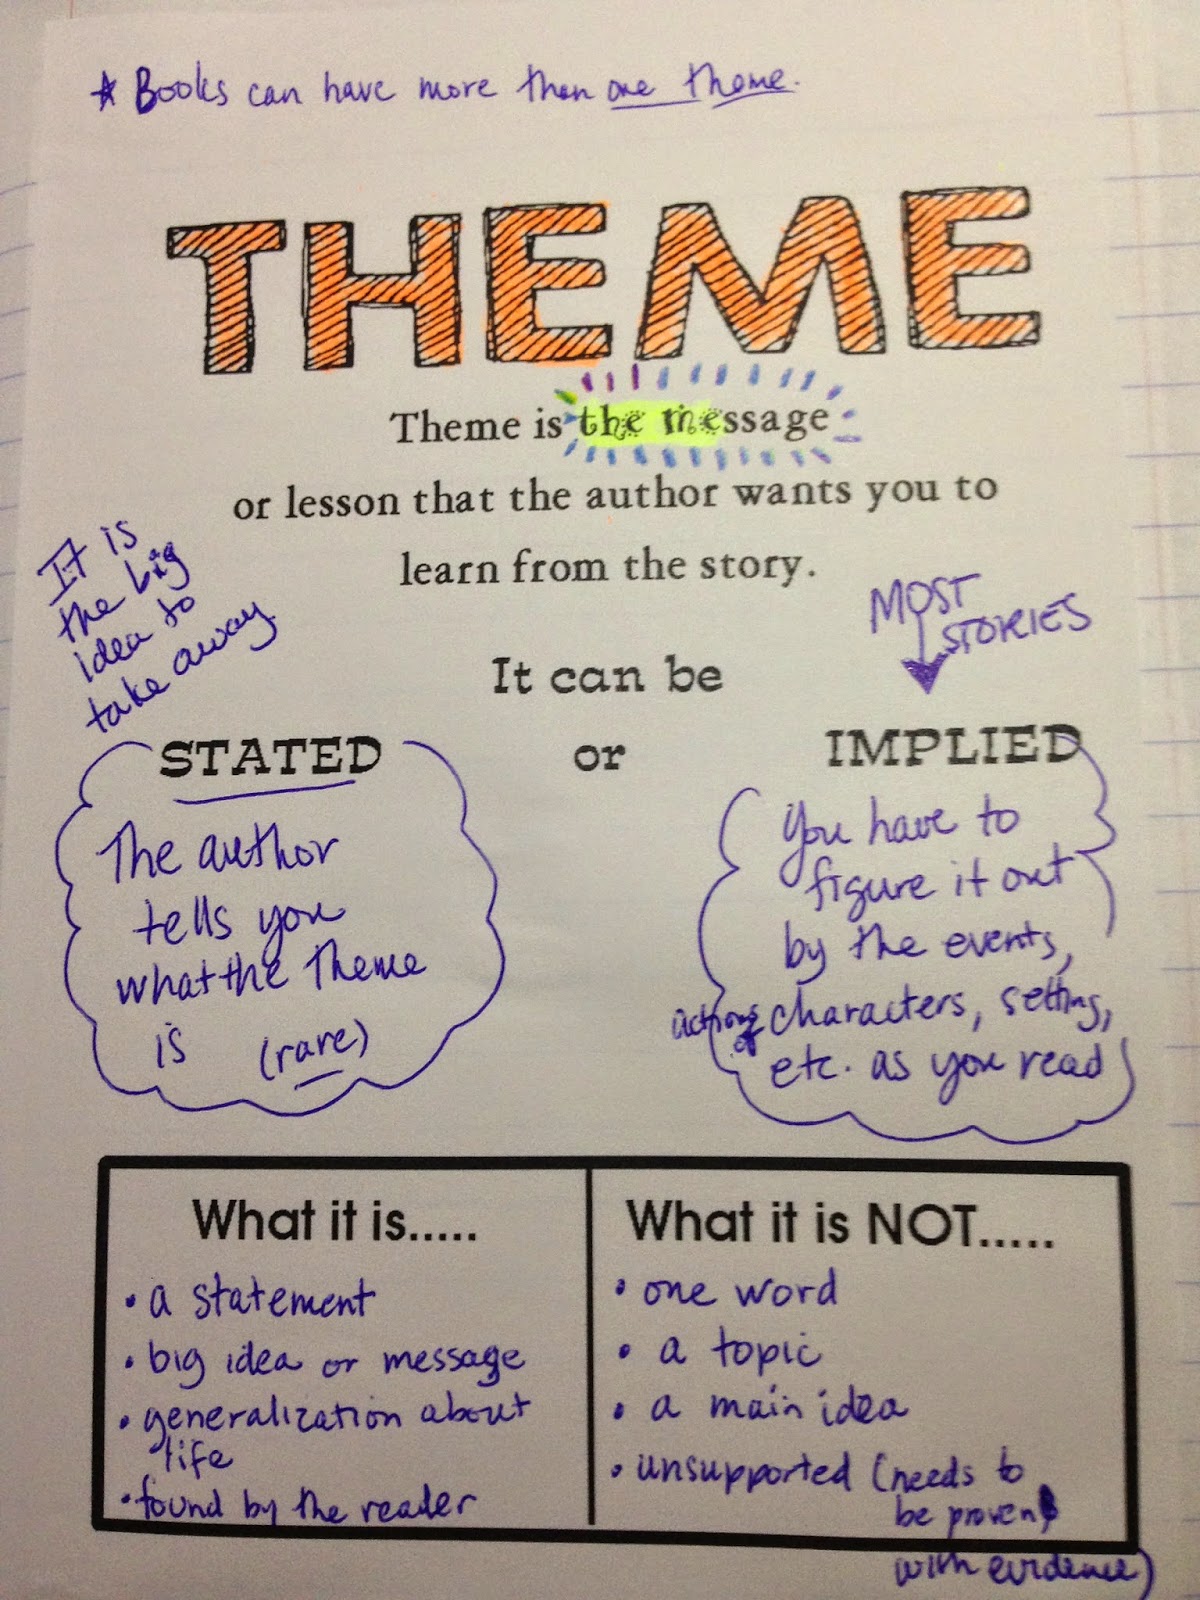 ☆ Books can have more then one theme.
THEME
Theme is the message
or lesson that the author wants you to
learn from the story.
It is
the big
idea to
take away
MOST
STORIES
It can be
STATED
or
IMPLIED
The author
tells you
what the theme
is (rare)
you have to
figure it out
by the events,
actions of characters, setting,
etc. as you read
What it is.....
• a statement
• big idea or message
• generalization about
life
• found by the reader
What it is NOT.....
• one word
• a topic
• a main idea
• unsupported (needs to
be proven
with evidence)